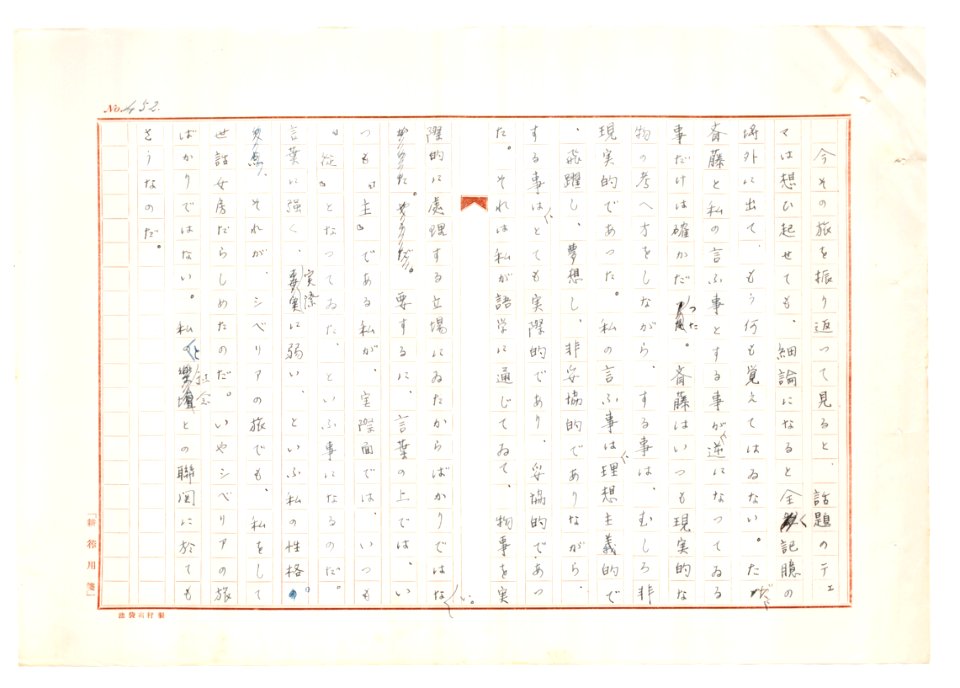 No. 452.
今その旅を振り返つて見ると、話題のテェ
マは想ひ起せても、細論になると全く記臆の
埒外に出て、もう何も覚えてはゐない。ただ
斎藤と私の言ふ事とする事が逆になつてゐる
事だけは確かだつた。斎藤はいつも現実的な
物の考へ方をしながら、する事は、むしろ非
現実的であつた。私の言ふ事は理想主義的で
、飛躍し、夢想し、非妥協的でありながら、
する事はとても実際的であり、妥協的であつ
た。それは私が語学に通じてゐて、物事を実
際的に處理する立場にゐたからばかりではない。
要するに、言葉の上では、い
つも『主』である私が、実際面では、いつも
『従』となつてゐた、といふ事になるのだ。
言葉に強く、実際に弱い、といふ私の性格。
それが、シベリアの旅でも、私をして
世話女房だらしめたのだ。いやシベリアの旅
ばかりではない。私と
との聯関に於ても
さうなのだ。
「新椽用箋」